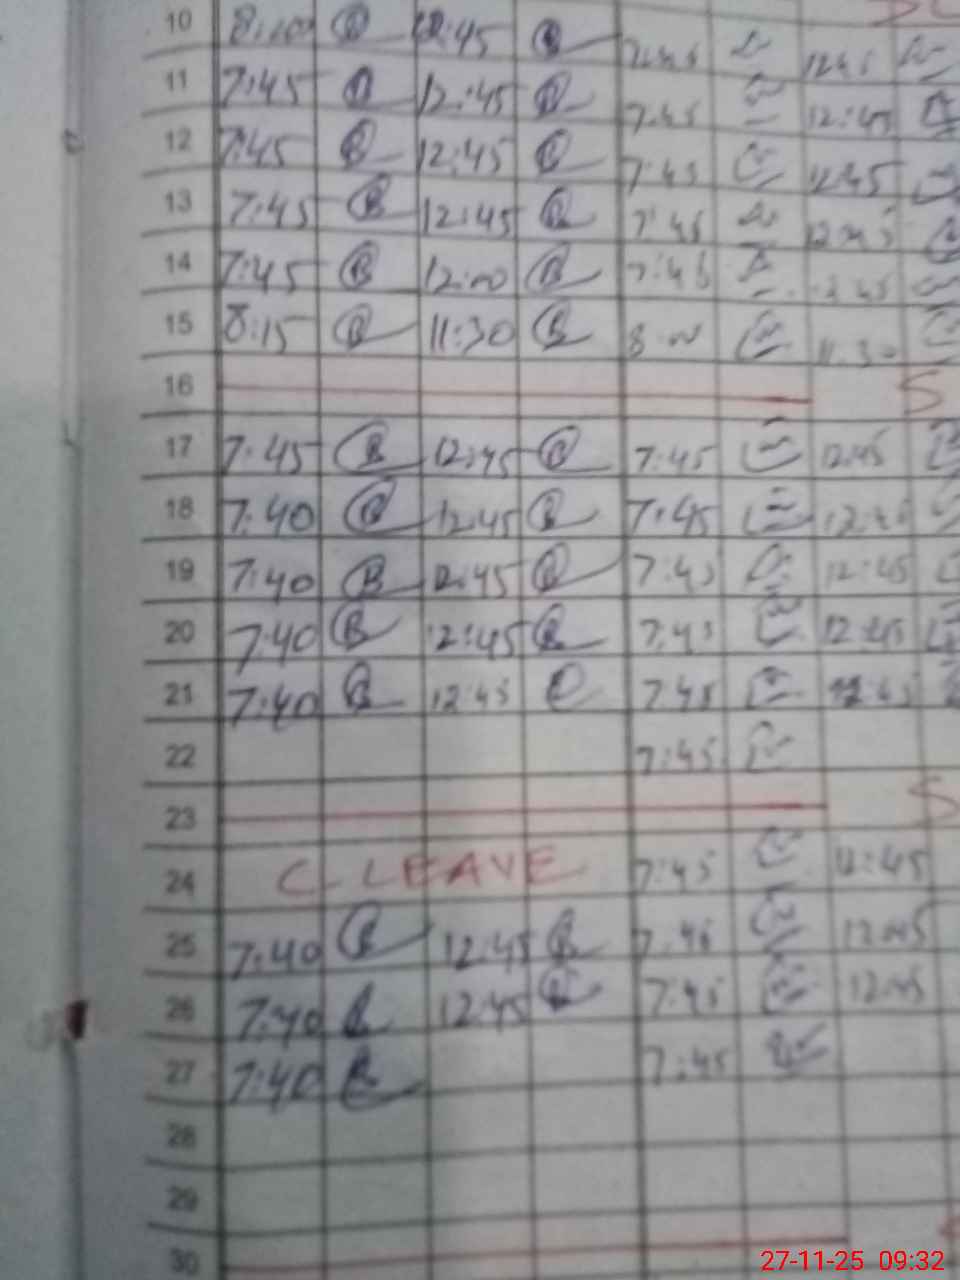 10 8:10 12:45 7:45 12:45
11 7:45 12:45 7:45 12:45
12 7:45 12:45 7:45 12:45
13 7:45 12:45 7:45 12:45
14 7:45 12:00 7:45 12:45
15 8:15 11:30 8:00 11:30
16 S
17 7:45 12:45 7:45 12:45
18 7:40 12:45 7:45 12:45
19 7:40 12:45 7:45 12:45
20 7:40 12:45 7:45 12:45
21 7:40 12:45 7:45 12:45
22 7:45
23 S
24 C LEAVE 7:45 12:45
25 7:40 12:45 7:45 12:45
26 7:40 12:45 7:45 12:45
27 7:40 7:45
28
29
30
27-11-25 09:32